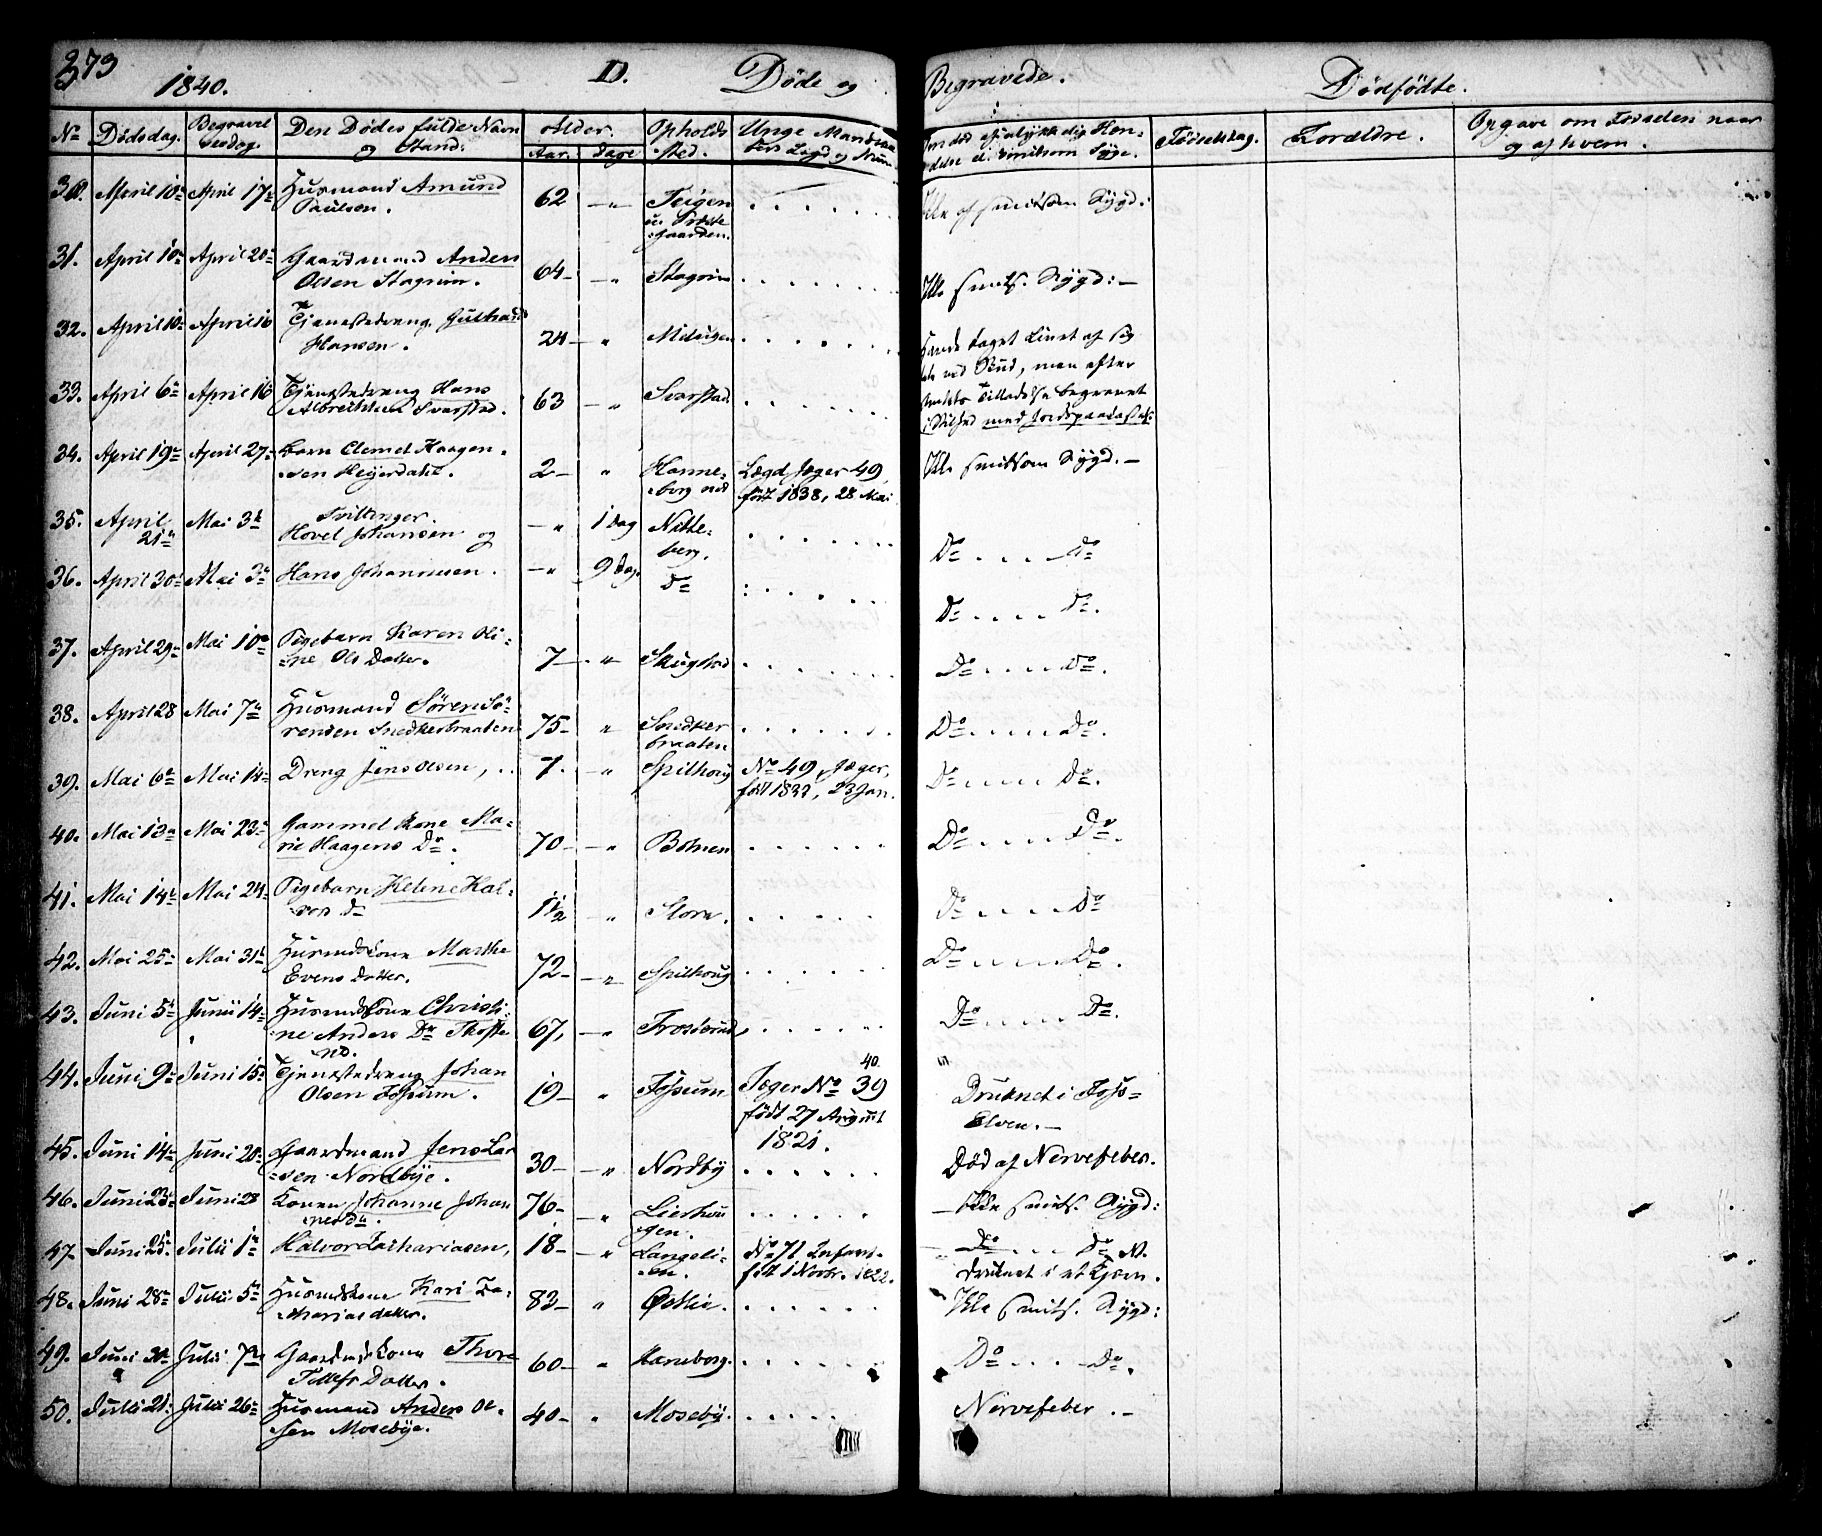 373
1840.
D.
Døde og
Begravede.
Dødfødte.
No Dødsdag. Begravelsesdag. Den Dødes fulde Navn og Stand. Alder. Aar. Dage Opholds sted. Unge Mandskabers Lægd og Num
Fødselsdag. Forældre. Opgave om Friseden naar og af hvem.
30. April 10de April 17de Huusmand Amund
Paulsen. 62 — " Teigen u. Præstegaarden. Ikke af smitsom Sygd:
31. April 10de April 20de Gaardmand Anders
Olsen Stagrim. 64 — " Stagrim Ikke smits. Sygd: —
32. April 10de April 16 Tjenestedreng Gulbrand
Hansen. 24 — " Havde taget Livet af sig
33. April 6te April 16 Tjenestedreng Hans
Albrechtsen Svarstad. 63 — " Svarstad
i Stilhed med Jordspaakastelse
34. April 19de April 27de Barn Clemet Haagen-
sen Heyerdahl. 2 — " Hanneborg ned Lægd Jæger 49, født 1838, 28 Mai Ikke smitsom Sygd. —
35. April 21de Mai 3de Tvillinger.
Hovel Johansen og — " 1 Dag Nitteberg. Do . . . Do
36. April 30de Mai 3de Hans Johannesen. — " 9 Dag. Do Do . . . . Do.
37. April 29de Mai 10de Pigebarn Karen Oli-
ne Ols Datter. 7 — " Skugstad Do . . . . Do.
38. April 28 Mai 7de Huusmand Søren Sö-
rensen Snedkerbraaten 75 — " Snedkerbraaten Do . . . . Do.
39. Mai 6te Mai 14de Dreng Jens Olsen, 7. — " Spilhoug No 49 Jæger, født 1833, 23 Jan. Do . . . . Do.
40. Mai 13de Mai 23de Gammel Kone Ma-
rie Haagens Dr. 70 — " Botnen Do . . . . Do.
41. Mai 14de Mai 24de Pigebarn Helene Hal-
vors Dr 1 1/2 " Slora. Do . . . . Do
42. Mai 25de Mai 31te Huusmdskone Marthe
Evens Datter. 72 — " Spilhoug Do . . . . Do.
43. Juni 5te Junii 14de Huusmdskone Christi-
ne Anders Dr 67, — " Do . . . . Do.
44. Juni 9de Juni 15de Tjenestedreng Johan
Olsen Fossum. 19 — " Fossum Jæger No 39 40. født 27 August 1821. Druknet i Foss-
Elven. —
45. Juni 14de Juni 20de Gaardmand Jens Lar
sen Nordbye. 30 — " Nordby Død af Nervefeber.
46. Juni 23de Juni 28 Konen Johanne Johan
nesdr. 76 — " Lierhougen. — Ikke smits. Sygd:
47. Juni 25de Julii 1te Halvor Zachariasen, 18 — " Langelien. No 71 Infant. født 1 Novbr. 1822. Do . . . Do N.
druknet i et Kjern.
48. Juni 28de Julii 5te Huusmdskone Kari Za-
chariasdatter. 83 — " Østlie. Ikke smits. Sygd:
49. Juni 30 Julii 7de Gaardmdskone Thore
Tollefs Datter. 60 — " Haneborg. Do . . . Do.
50. Julii 21 Julii 26de Huusmand Anders Ol-
sen Mosebye. 40 — " Moseby. Nervefeber. —